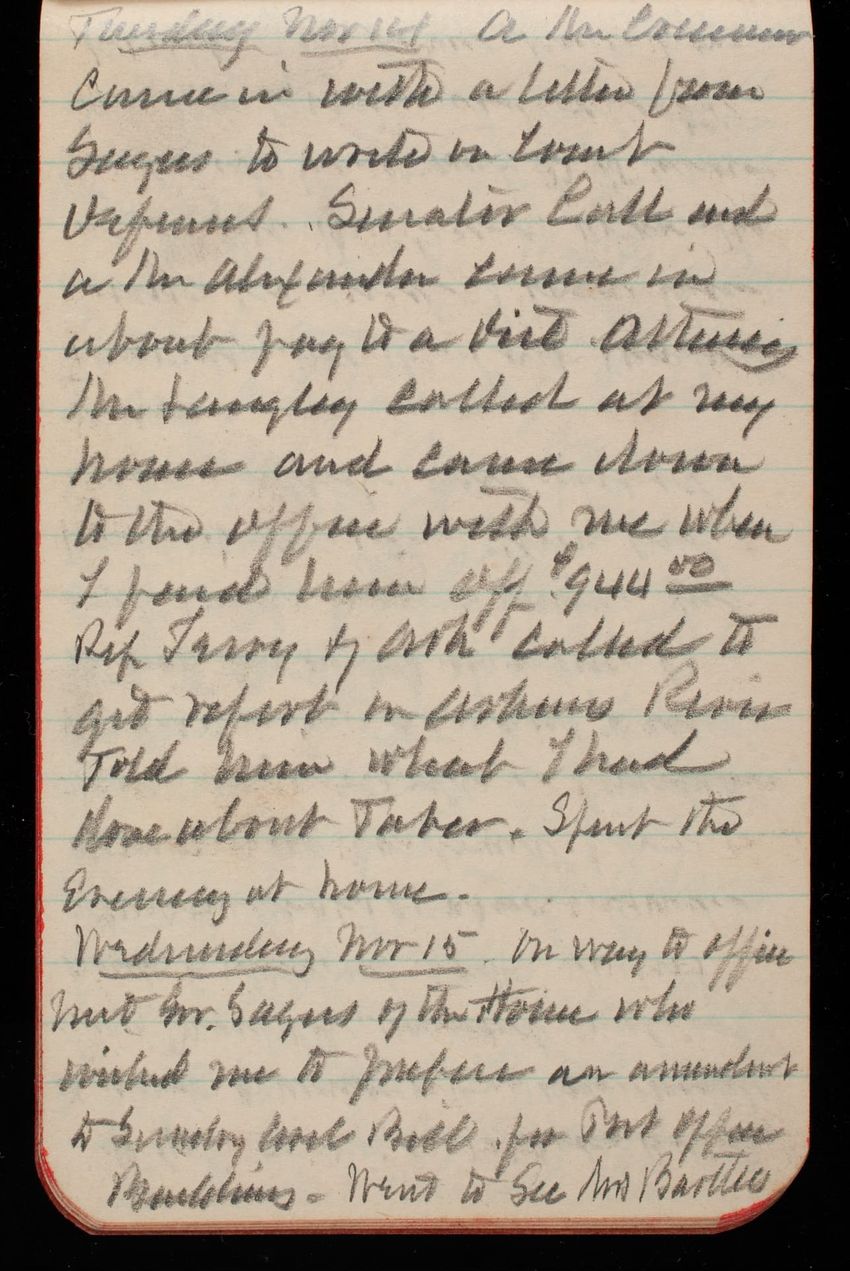 Tuesday Nov 14 A Mr
came in with a letter from
Sayers to write on Coast
Defenses. Senator Call and
a Mr Alexander came in
about pay to a Dist Attorney
Mr Langley called at my
house and came down
to the office with me when
I paid him off $944 00
Rep Terry of Ark called to
get report on Arkans River
Told him what I had
done about Taber. Spent the
Evening at home.
Wednesday Nov 15. On way to office
met Gov. Sayers of the House who
wished me to prepare an amendmt
to Sundry Civil Bill for Post Office
Buildings - Went to see Mrs